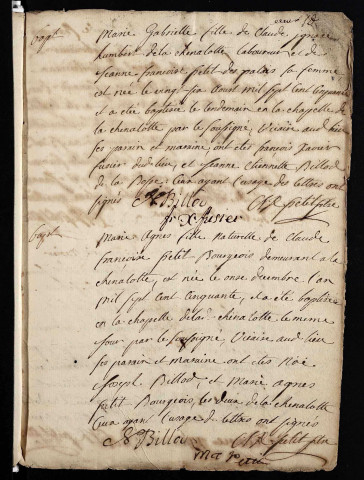 bapt.
Marie Gabrielle fille de Claude ignace
humbert de la chenalotte laboureur et de
jeanne françoise petit des palais sa femme
est née le vingt six aoust mil sept cent cinquante
et a eté baptisée le lendemain en la chapelle de
la chenalotte par le soussigné vicaire audit lieu
ses parein et mareine ont etés françois Xavier
fusier dudit lieu, et jeanne Etiennette Billod
de la Bosse. ceux ayant l'usage des lettres ont
signés Billod
fr X fusier
bapt.
Marie Agnes fille Naturelle de Claude
françoise petit Bourgeois demeurant a la
chenalotte, est née le onze decembre l'an
mil sept cent cinquante, et a eté baptisée
en la chapelle de la chenalotte le meme
jour par le soussigné vicaire audit lieu
ses parein et mareine ont etés
joseph Billod, et Marie agnes
petit Bourgeois, les deux de la chenalotte
ceux ayant l'usage de lettres ont signés
Billod